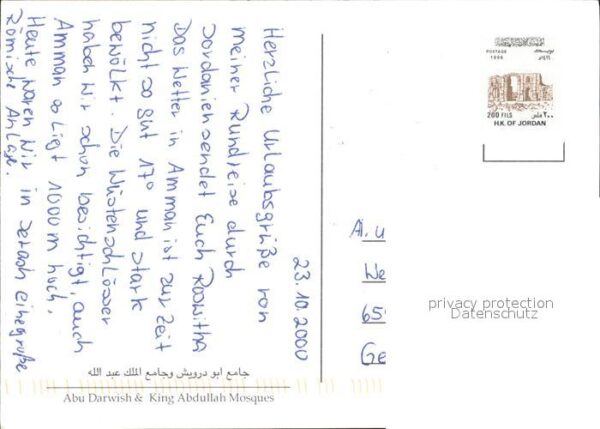 23.10.2000
Herzliche Urlaubsgrüße von
meiner Rundreise durch
Jordanien sendet Euch Roswitha
Das Wetter in Amman ist zur Zeit
nicht so gut 17° und stark
bewölkt. Die Wüstenschlösser
haben wir schon besichtigt, auch
Amman liegt 1000m hoch.
Heute waren wir in Jerash eine große
Römische Anlage.
جامع ابو درويش وجامع الملك عبد الله
Abu Darwish & King Abdullah Mosques
POSTAGE
1996
200 FILS ٢٠٠ فلس
H.K. OF JORDAN
We
65
Ge
privacy protection
Datenschutz